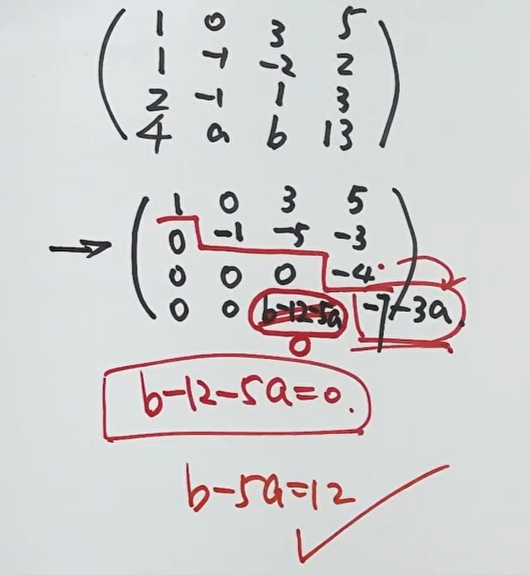 1 0 3 5
1 -1 -2 2
2 -1 1 3
4 a b 13
→ 1 0 3 5
0 -1 -5 -3
0 0 0 -4
0 0 b-12-5a -7-3a
0
b-12-5a=0.
b-5a=12